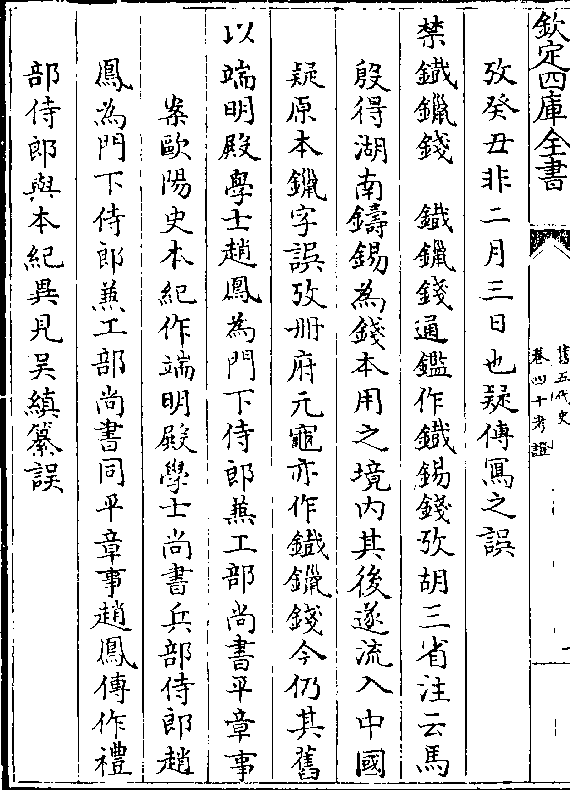 欽定四庫全書
舊五代史
卷四十考證
一
攷癸丑非二月三日也疑傳冩之誤
禁鐡鑞錢　鐡鑞錢通鑑作鐡錫錢攷胡三省注云馬
殷得湖南鑄錫為錢本用之境内其後遂流入中國
疑原本鑞字誤攷册府元龜亦作鐡鑞錢今仍其舊
以端明殿學士趙鳳為門下侍郎兼工部尚書平章事
案歐陽史本紀作端明殿學士尚書兵部侍郎趙
鳳為門下侍郎兼工部尚書同平章事趙鳳傳作禮
部侍郎與本紀異見吴縝纂誤